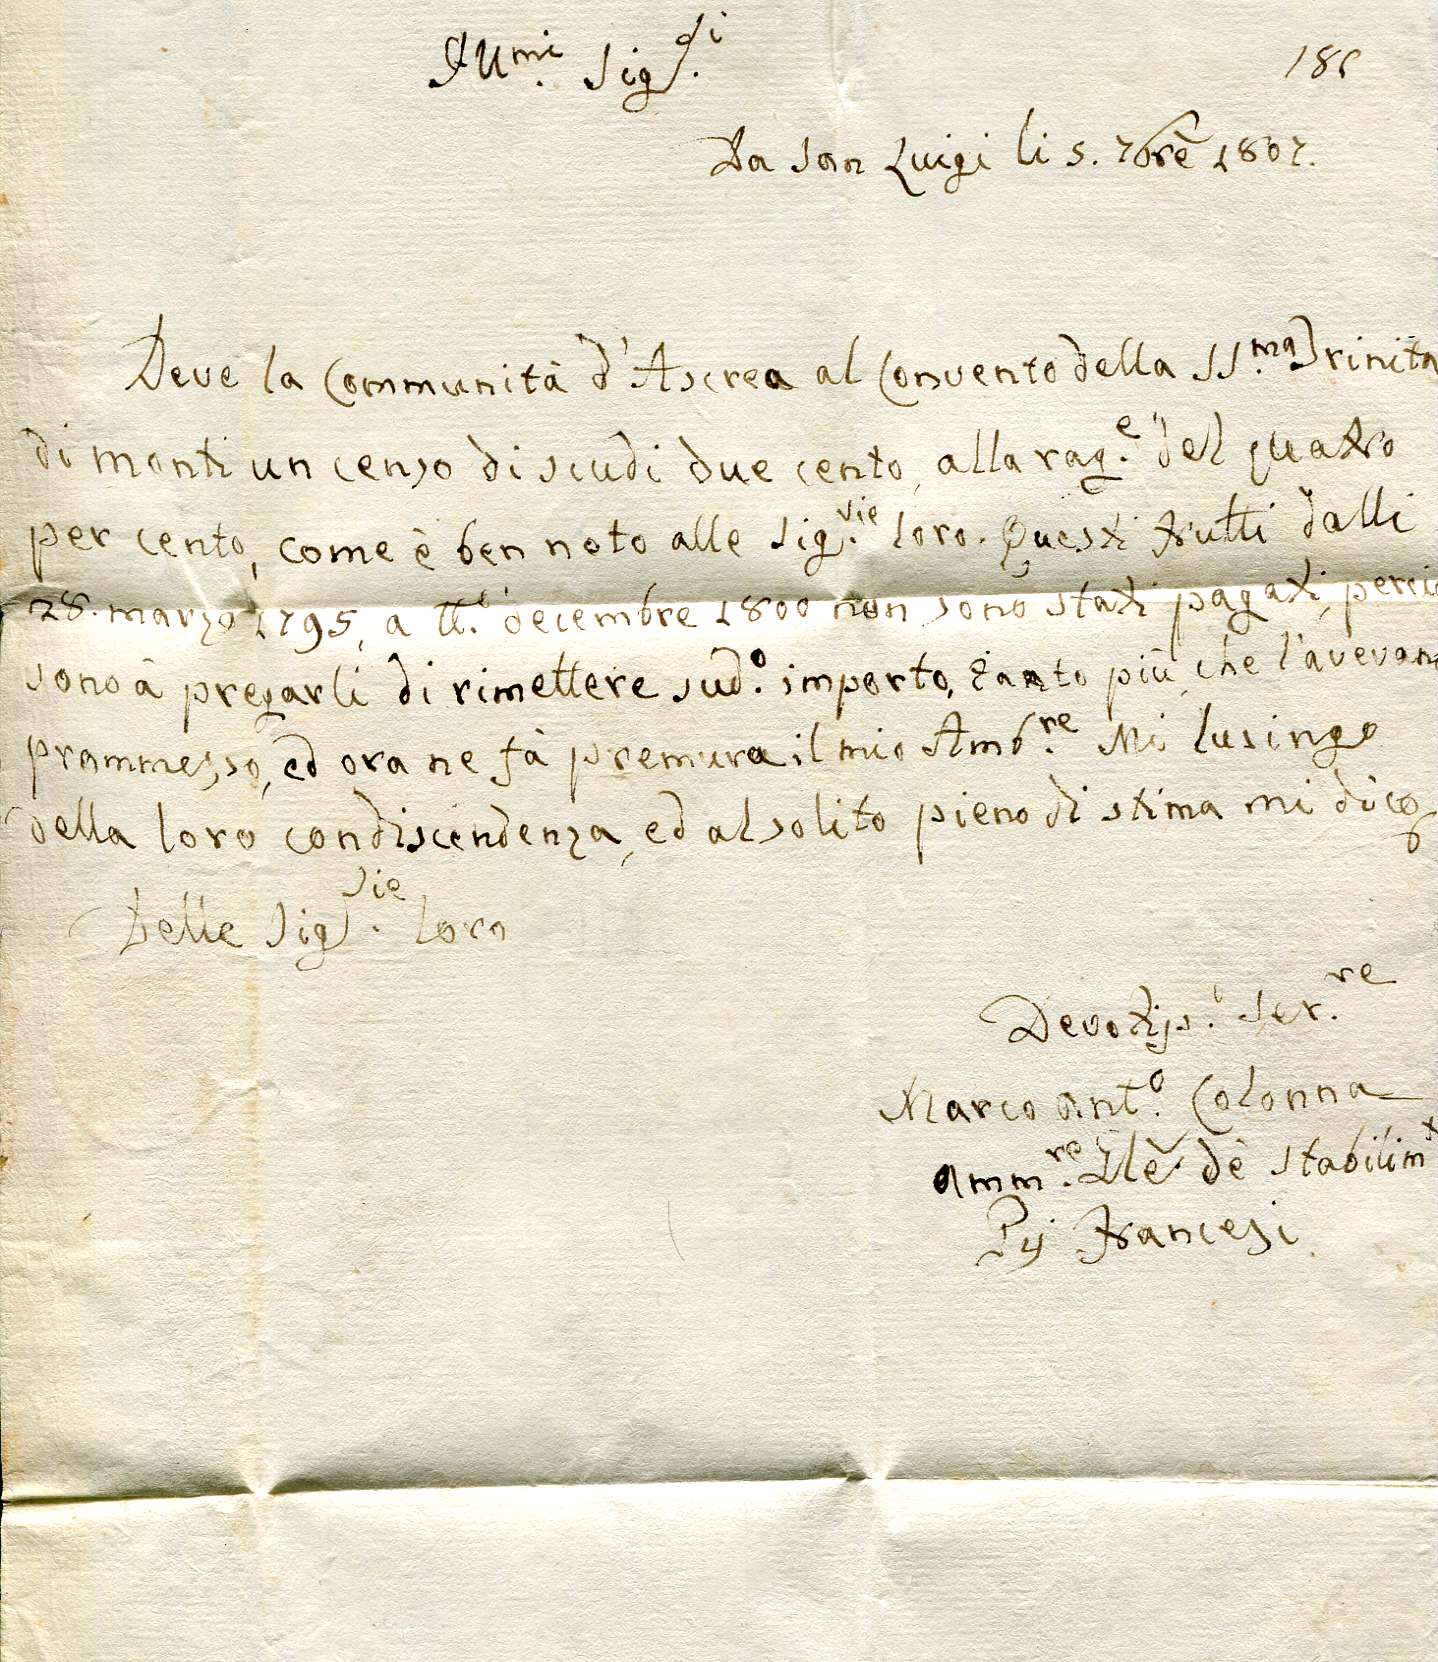 Illmi. Sigri.
186
Da San Luigi li 5. 7brè 1807.
Deve la Communità d'Ascrea al Convento della SS.ma Trinità
di monti un censo di scudi due cento, alla rag.e del quatro
per cento, come è ben noto alle Sig.rie loro. Questi frutti dalli
28. marzo 1795, a tt.o decembre 1800 non sono stati pagati, perciò
sono à pregarli di rimettere sud.o importo, tanto più, che l'avevano
prommesso, ed ora ne fà premura il mio Amb.re Mi lusingo
della loro condiscendenza, ed al solito pieno di stima mi dico
Delle Sig.rie Loro
Devotiss.o Ser.re
Marco Ant.o Colonna
Amm.re Gle. dè Stabilim.ti
Pij Francesi